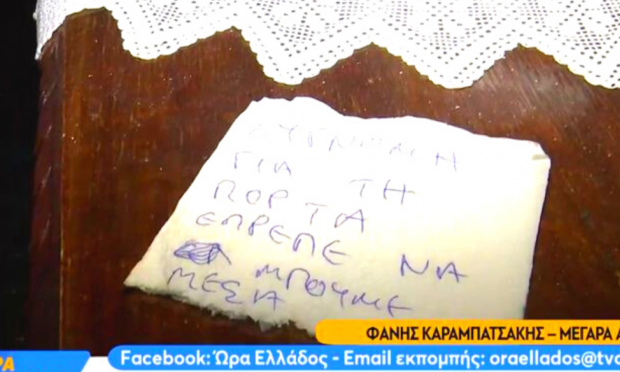 ΣΥΓΝΩΜΗ
ΓΙΑ ΤΗ
ΠΟΡΤΙΑ
ΕΠΡΕΠΕ ΝΑ
ΜΠΟΥΜΕ
ΜΕΣΑ
ΦΑΝΗΣ ΚΑΡΑΜΠΑΤΣΑΚΗΣ – ΜΕΓΑΡΑ
ΡΑ
Facebook: Ώρα Ελλάδος - Email εκπομπής: oraellados@tv